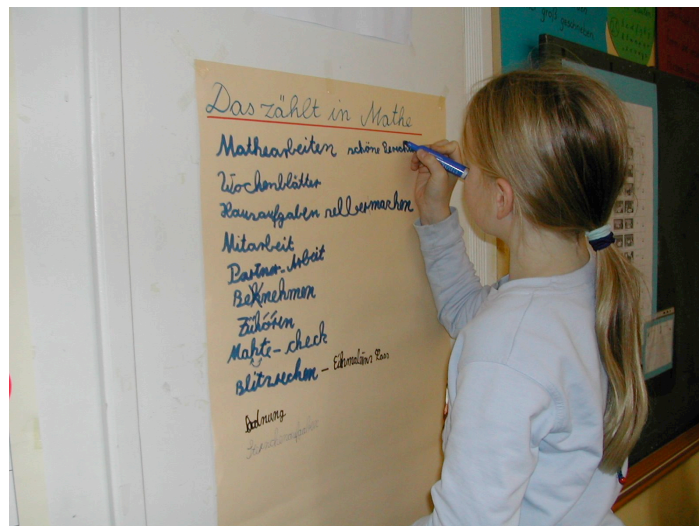 groß geschrieben
Das zählt in Mathe
Mathearbeiten schöne
Wochenblätter
Hausaufgaben sellbermachen
Mitarbeit
Partner-Arbeit
Benehmen
Zuhören
Mahte-check
Blitzrechen - Einmaleins Pass
Ordnung